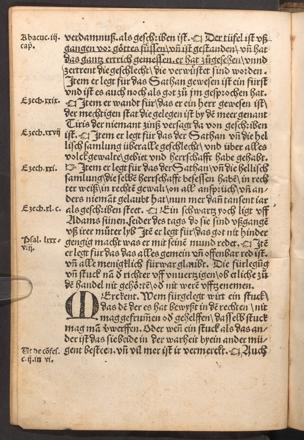 Abacuc .iij.
cap̄.
verdamnuß. als geschriben ist. ❡ Der tüfel ist vß
gangen vor gottes füssen/ vñ ist gestanden/ vñ hat
das gantz ertrich gemessen. er hat zůgesehen/ vnnd
zertrent die geschlecht/ die verwüstet sind worden.
Item er legt für das Sathan gewesen ist ein fürst
vnd ist es auch noch als got zů jm gesprochen hat.
Ezech. xxix.
❡ Item er wandt für/ das er ein herr gewesen ist/
der mechtigen stat die gelegen ist by de meer genant
Tirus der niemant zinß versagt da von geschriben
Ezech. xxvij
ist. ❡ Item er legt für das der Sathan vñ die hel
lisch samlung über alle geschlecht/ vnd über alles
volck gewalt/ gebiet vnd herrschafft habe gehabt.
Ezech. xxi.
❡ Item er legt für das der Sathan/ vñ die hellisch
samlung die selbe herrschafft besessen habē/ in rech
ter weiß/ in rechtē gewalt/ on all anspruch/ vñ an-
ders niemāt gelaubt hat/ nun mer dañ tansent iar
Ezech. xl. c.
als geschriben steet. ❡ Ein schwartz
Adams sünen/ seider des tags do sie sind vßgangē
vß irer můter lyb Itē er legt für/ das got nit hinder
Psal. lxxx
gengig macht was er mit seinē mund redet. ❡ Itē
er legt für das das alles gemein vñ offenbar red ist.
vñ alle menigklich fürwar glaubt. Die fürlegūg
vñ stuck nā ď richter vff/ ob er liche zů
de handel nit gehörtē/ od nit werē vffzenemen.
MErckent. Wem fürgelegt wirt ein stuck/
das de der es hat bewyßt in de rechten/ nit
mag gefrumen od gehelffen/ dasselb stuck
mag mā verwerffen. Oder weñ ein stuck als das an-
der ist das sie beide in der warheit by ein ander mü-
gent besteen. vñ vil mer ist ir vermerckt. ❡ Auch